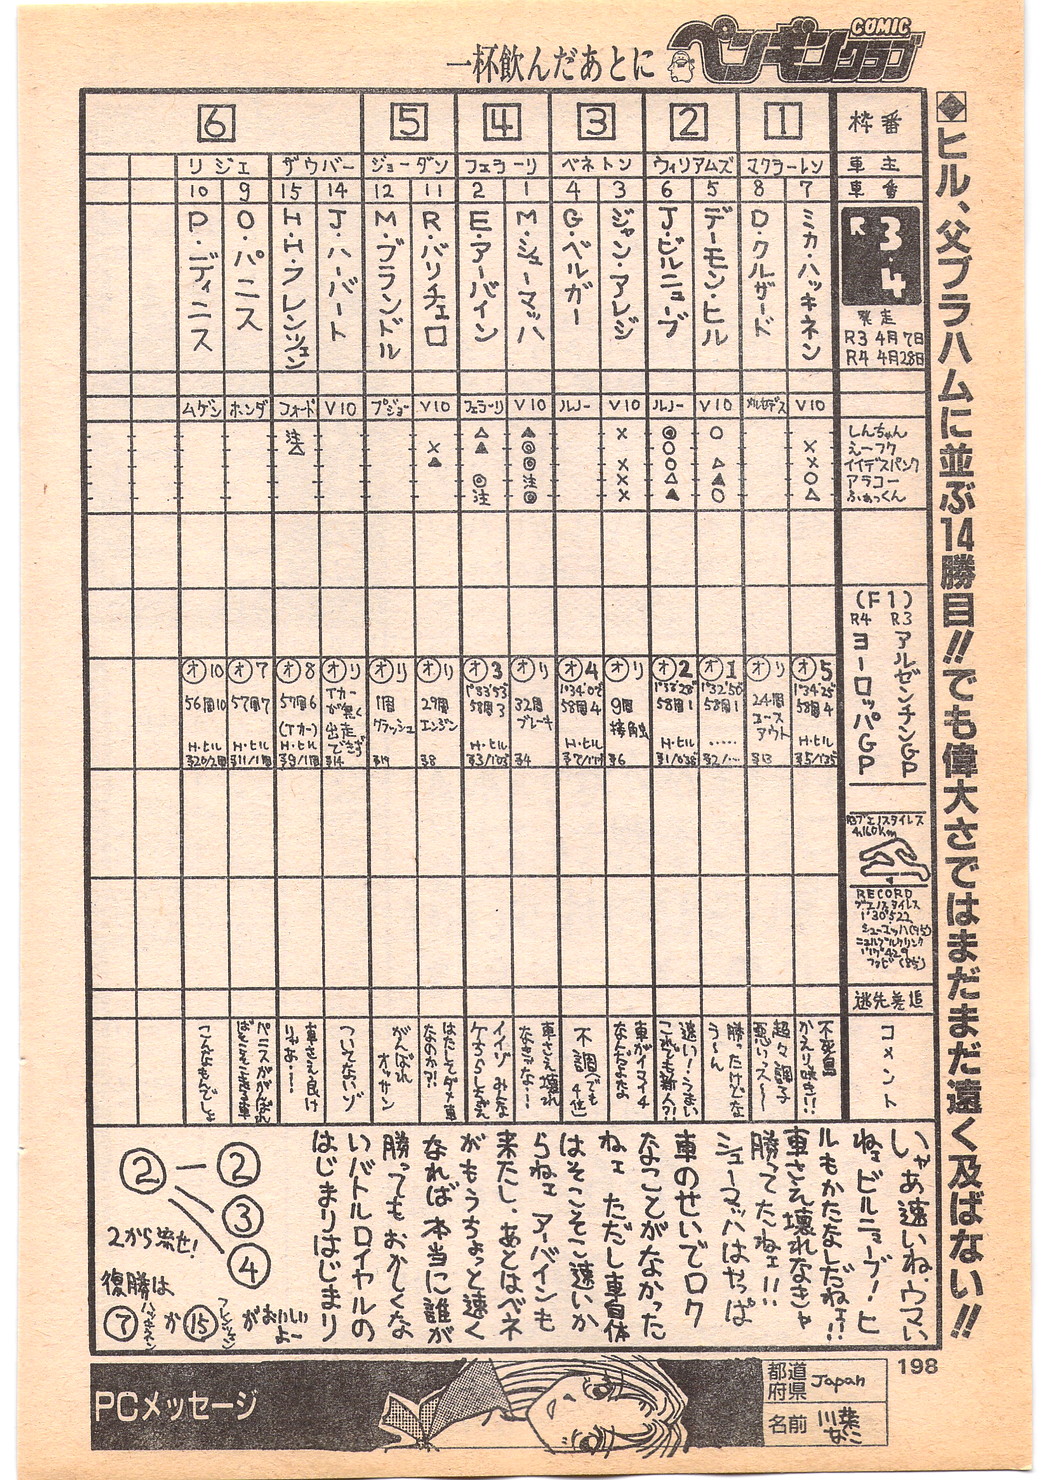 一杯飲んだあとに
COMIC
ペンギンクラブ
◆ヒル、父ブラハムに並ぶ14勝目!!でも偉大さではまだまだ遠く及ばない!!
枠番
1
2
3
4
5
6
車主
マクラーレン
ウィリアムズ
ベネトン
フェラーリ
ジョーダン
ザウバー
リジェ
車番
7
8
5
6
3
4
1
2
11
12
14
15
9
10
R 3・4
R3 4月7日
R4 4月28日
ミカ・ハッキネン
D・クルザード
デーモン・ヒル
J・ビルニューブ
ジャン・アレジ
G・ベルガー
M・シューマッハ
E・アーバイン
R・バリチェロ
M・ブランドル
J・ハーバート
H・H・フレンツェン
O・パニス
P・ディニス
V10
メルセデス
V10
ルノー
V10
ルノー
V10
フェラーリ
V10
プジョー
V10
フォード
ホンダ
ムゲン
しんちゃん
えーフク
イイデスパンク
アラコー
ふぁっくん
○
◎
×
▲
△
注
△
×
○
◎
▲
×
×
○
×
◎
▲
×
△
○
×
○
▲
△
×
注
◎
△
○
▲
×
◎
注
(F1)
R3 アルゼンチンGP
R4 ヨーロッパGP
オ5
1'34"25
58周4
H・ヒル
オリ
24周
コースアウト
オ1
58周1
……
オ2
58周1
H・ヒル
オリ
9周
接触
オ4
58周4
H・ヒル
オリ
32周
ブレーキ
オ3
58周3
H・ヒル
オリ
29周
エンジン
オリ
1周
クラッシュ
オリ
Tカーが無く出走できず
オ8
57周6
(Tカー)
H・ヒル
オ7
57周7
H・ヒル
オ10
56周10
H・ヒル
R3ブエノスアイレス
4.160km
RECORD
ブエノスアイレス
1'30"522
シューマッハ(95)
ニュルブルクリンク
逃先差追
コメント
不死鳥
かえり咲き!!
超々調子
悪いっス〜
勝ったけどな
う〜ん
速い!うまい
これでも新人?!
車がイマイチ
なんだよな
不調でも
4位
車さえ壊れ
なきゃな・・・
イイゾ みんな
ケちらしちゃえ
はたしてダメ車
なのか?!
がんばれ
オッサン
ついてないゾ
車さえ良け
りゃあ・・・
パニスががんばれ
ばそこそこ走る車
こんなもんでしょ
いやあ速いね、ウマい
ねェビルニューブ!ヒ
ルもかたなしだねェ!!
車さえ壊れなきゃ
勝ってたねェ!!
シューマッハはやっぱ
車のせいでロク
なことがなかった
ねェ ただし車自体
はそこそこ速いか
らねェ アーバインも
来たし、あとはベネ
がもうちょっと速く
なれば本当に誰が
勝ってもおかしくな
いバトルロイヤルの
はじまりはじまり
②−②
③
④
2から流せ!
復勝は
⑦ハッキネンか⑮フレンツェンがおいしいよー
198
PCメッセージ
都道府県 Japan
名前 川菜なこ